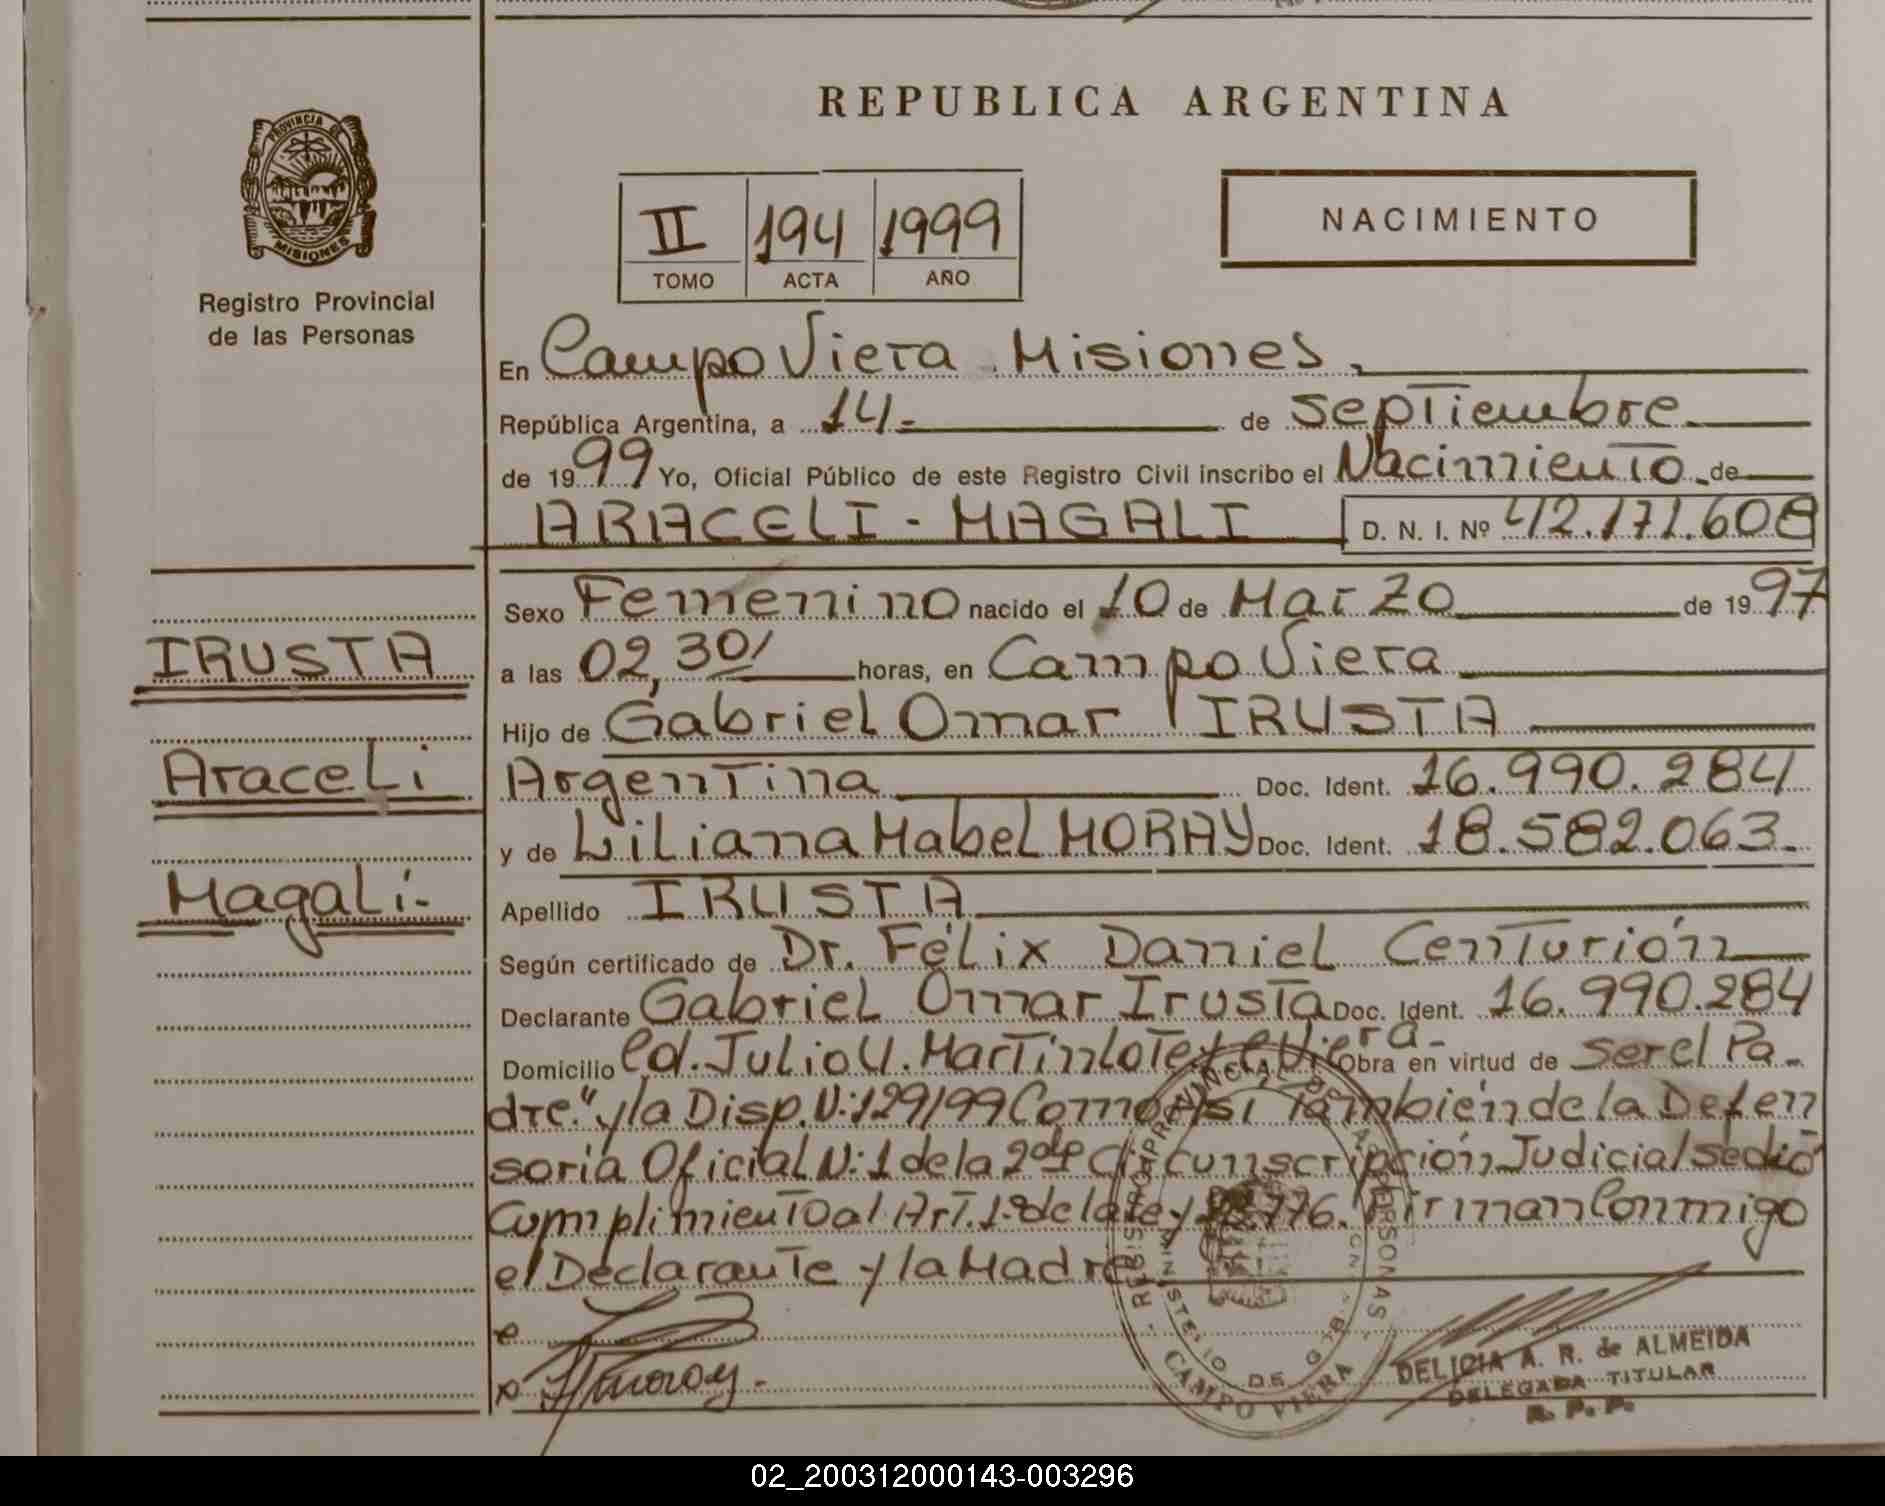 REPUBLICA ARGENTINA
PROVINCIA DE
MISIONES
Registro Provincial
de las Personas
II 194 1999
TOMO ACTA AÑO
NACIMIENTO
En Campo Viera Misiones,
República Argentina, a 14- de septiembre
de 1999 Yo, Oficial Público de este Registro Civil inscribo el Nacimiento de
ARACELI - MAGALI D. N. I. Nº 42.171.608
Sexo Femenino nacido el 10 de Marzo de 1997
a las 02,30' horas, en Campo Viera
Hijo de Gabriel Omar IRUSTA
Argentina Doc. Ident. 16.990.284
y de Liliana Mabel MORAY Doc. Ident. 18.582.063.
Apellido IRUSTA
Según certificado de Dr. Félix Daniel Centurión
Declarante Gabriel Omar Irusta Doc. Ident. 16.990.284
Domicilio Cd. Julio U. Martin Viera- Obra en virtud de ser el Pa-
dre." y la Disp. N:129/99 Como Asi también de la Defen
soria Oficial N:1 de la 2da Circunscripción Judicial se dió
Cumplimiento al Art. 1º de la ley 776. Firman Conmigo
el Declarante y la Madre
IRUSTA
Araceli
Magali-
REGISTRO PROVINCIAL DE LAS PERSONAS
MINISTERIO DE GOB.
CAMPO VIERA
DELICIA A. R. de ALMEIDA
DELEGADA TITULAR
R. P. P.
02_200312000143-003296